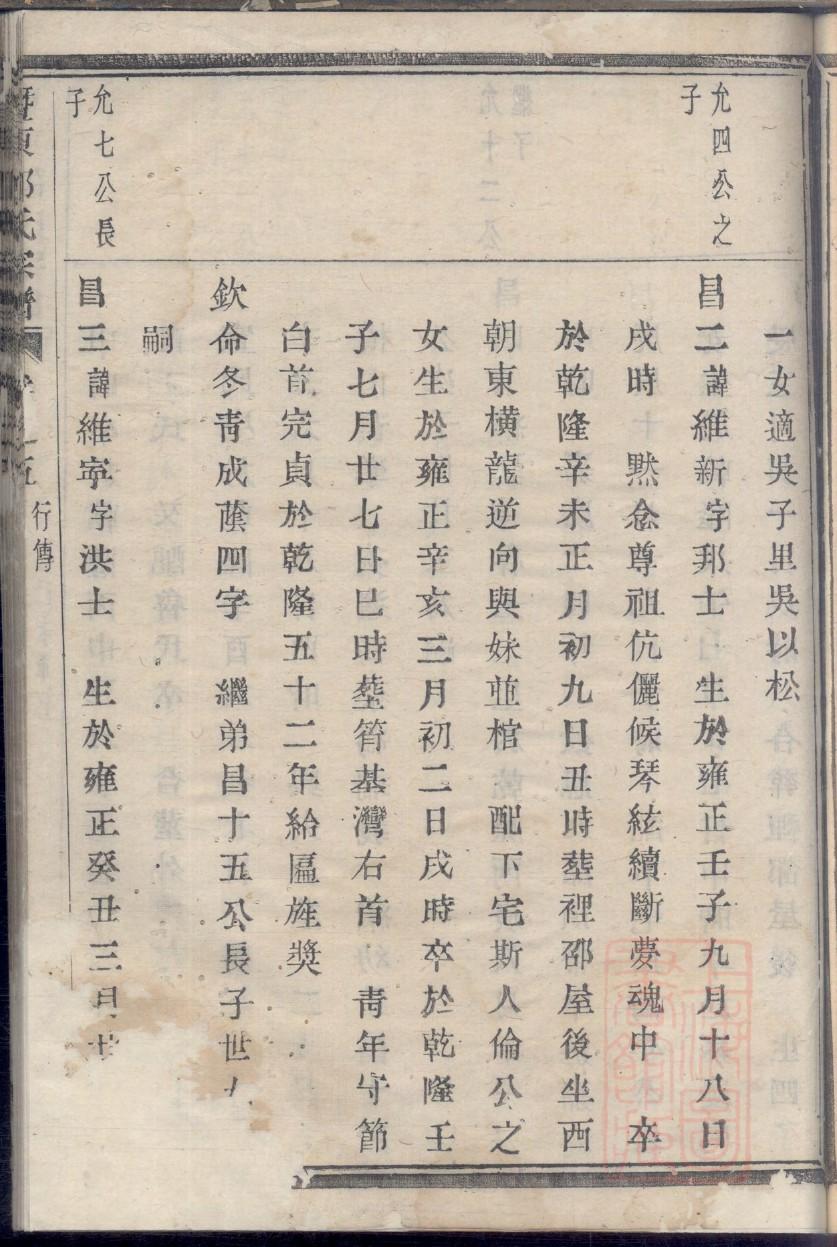 一女適吳子里吳以松
允四公之
子
昌二諱維新字邦士 生於雍正壬子九月十八日
戌時 黙念尊祖伉儷候琴絃續斷夢魂中 卒
於乾隆辛未正月初九日丑時塟裡邵屋後坐西
朝東橫龍逆向與妹並棺 配下宅斯人倫公之
女生於雍正辛亥三月初二日戌時卒於乾隆壬
子七月廿七日巳時塟箬基灣右首 靑年守節
白首完貞於乾隆五十二年給匾旌奬
欽命冬靑成蔭四字 繼弟昌十五公長子世
嗣
允七公長
子
昌三諱維寧字洪士 生於雍正癸丑三月廿
氏宗譜
行傳